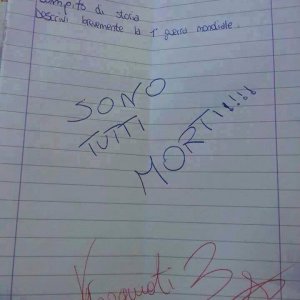 Compito di storia
Descrivi brevemente la 1° guerra mondiale.
SONO
TUTTI
MORTI!!!!!
Vergognati 3